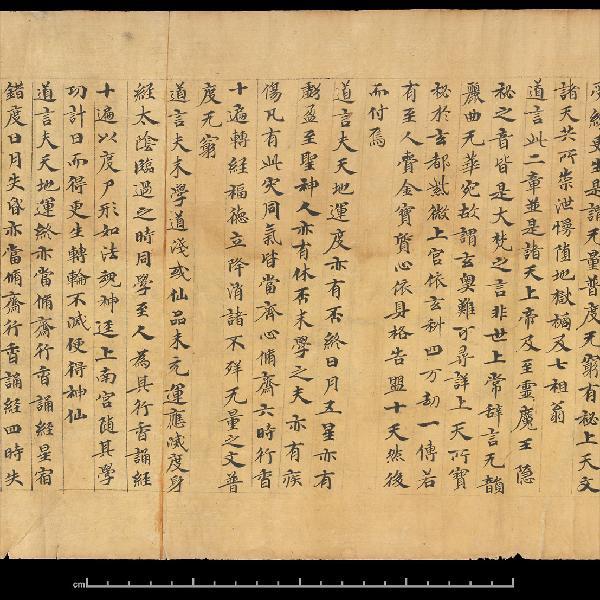 受終更生是謂无量普度无窮有秘上天文
諸天共所崇泄慢墮地獄禍及七祖翁
道言此二章並是諸天上帝及至靈魔王隱
秘之音皆是大梵之言非世上常辞言无韻
麗曲无華宛故謂玄奧難可尋詳上天所寶
秘於玄都紫微上宮依玄科四万劫一傳若
有至人賫金寶質心依身格告盟十天然後
而付焉
道言夫天地運度亦有否終日月五星亦有
虧盈至聖神人亦有休否末學之夫亦有疾
傷凡有此灾同氣皆當齊心脩齋六時行香
十遍轉經福德立降消諸不祥无量之文普
度无窮
道言夫末學道淺或仙品未充運應滅度身
經太陰臨過之時同學至人為其行香誦經
十遍以度尸形如法魂神逕上南宮隨其學
功計日而得更生轉輪不滅便得神仙
道言夫天地運終亦當脩齋行香誦經星宿
錯度日月失昏亦當脩齋行香誦經四時失
cm